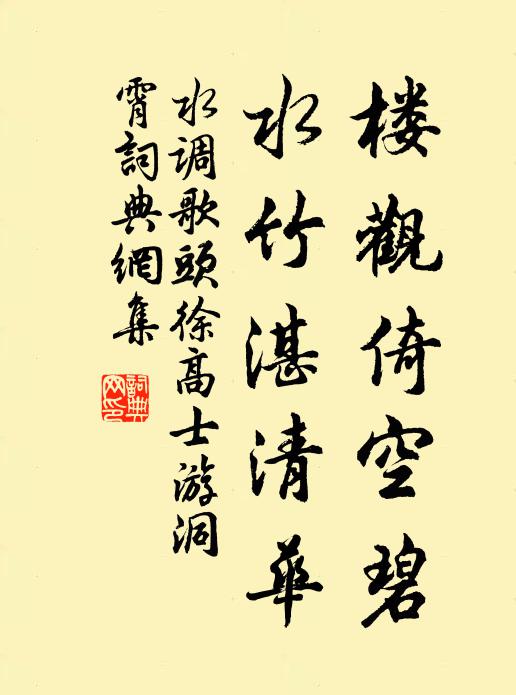 楼觀倚空碧
水竹湛清華
水调歌頭徐高士游洞
霄詞典網集
詞典網印